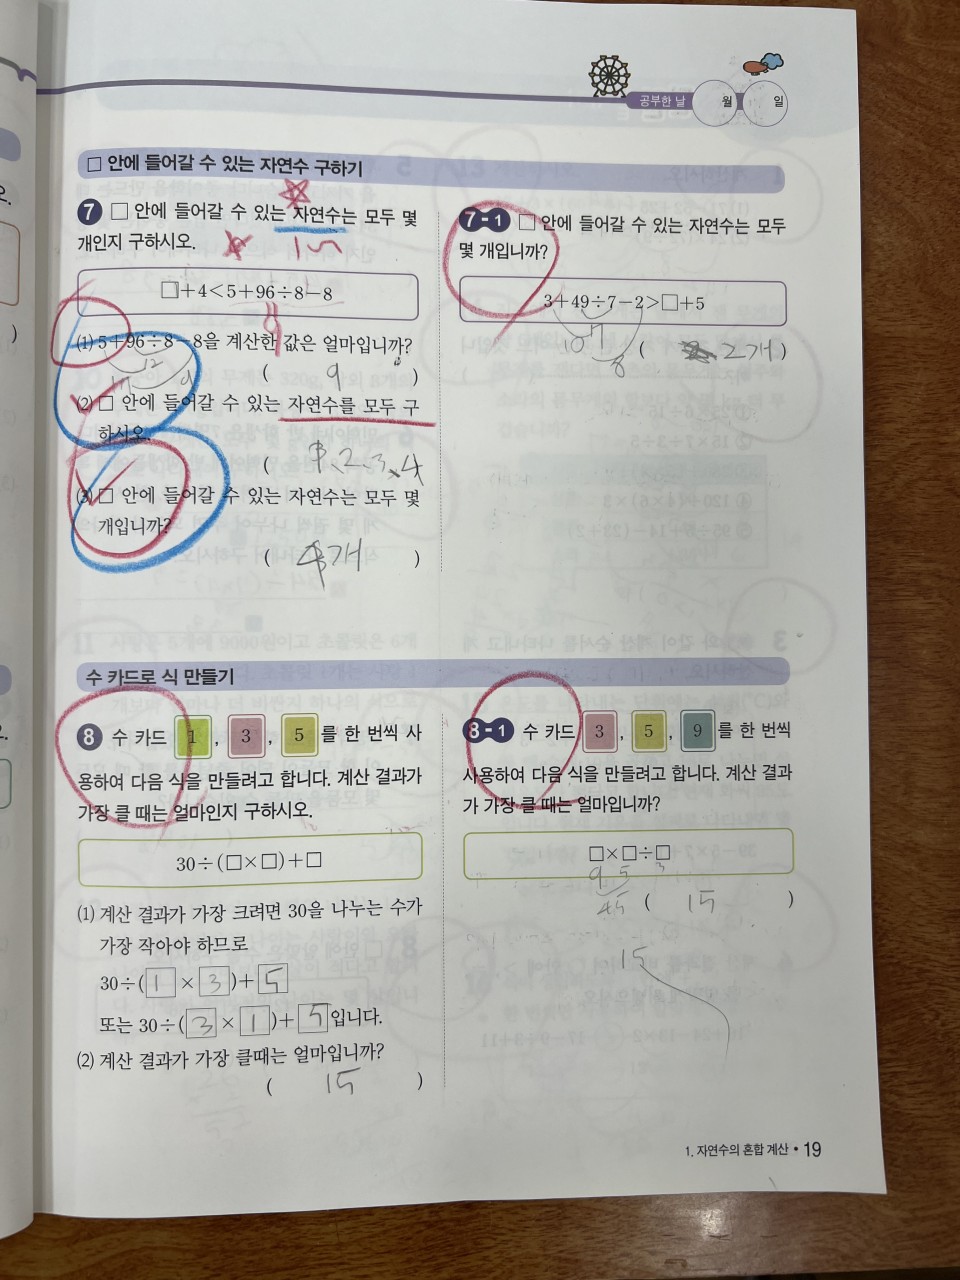 공부한 날 월 일
□ 안에 들어갈 수 있는 자연수 구하기
7 □ 안에 들어갈 수 있는 자연수는 모두 몇
개인지 구하시오.
□+4<5+96÷8-8
(1) 5+96÷8-8을 계산한 값은 얼마입니까?
12
( 9 )
(2) □ 안에 들어갈 수 있는 자연수를 모두 구
하시오.
( 1, 2, 3, 4
(3) □ 안에 들어갈 수 있는 자연수는 모두 몇
개입니까?
( 4개 )
7-1 □ 안에 들어갈 수 있는 자연수는 모두
몇 개입니까?
3+49÷7-2>□+5
7
10
8
( 2개 )
수 카드로 식 만들기
8 수 카드 1, 3, 5를 한 번씩 사
용하여 다음 식을 만들려고 합니다. 계산 결과가
가장 클 때는 얼마인지 구하시오.
30÷(□×□)+□
(1) 계산 결과가 가장 크려면 30을 나누는 수가
가장 작아야 하므로
30÷(1×3)+5
또는 30÷(3×1)+5입니다.
(2) 계산 결과가 가장 클때는 얼마입니까?
( 15 )
8-1 수 카드 3, 5, 9를 한 번씩
사용하여 다음 식을 만들려고 합니다. 계산 결과
가 가장 클 때는 얼마입니까?
□×□÷□
9 5 3
45 ( 15 )
15
1. 자연수의 혼합 계산 • 19